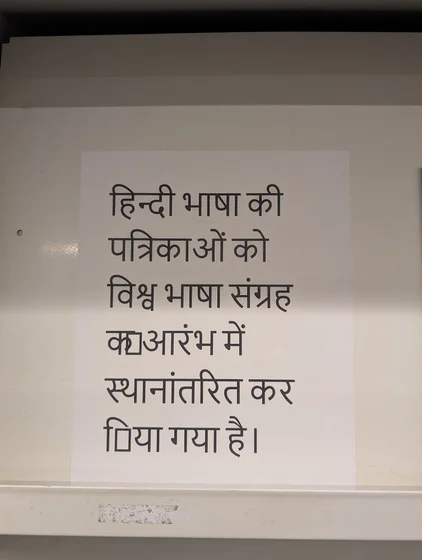 हिन्दी भाषा की
पत्रिकाओं को
विश्व भाषा संग्रह
आरंभ में
स्थानांतरित कर
गया है।